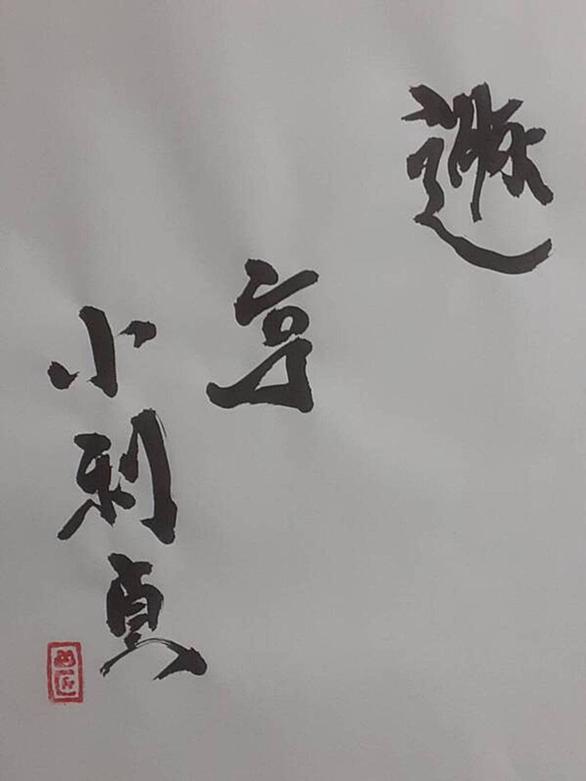 遯
亨
小利貞